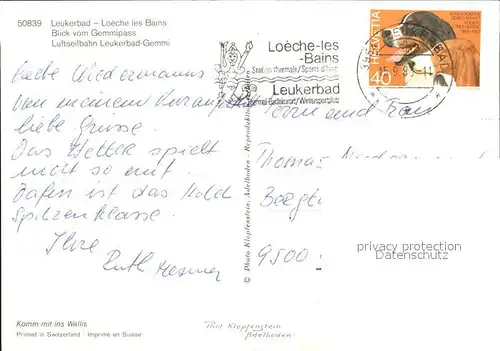 50839 Leukerbad – Loèche les Bains
Blick vom Gemmipass
Luftseilbahn Leukerbad-Gemmi
Loèche-les
-Bains
Station thermale/Sports d'hiver
Leukerbad
Thermal-Badekurort/Wintersportplatz
HELVETIA
40
Liebe Wiedermanns
Von meinem Kuraufenthalt
liebe Grüsse.
Das Wetter spielt
nicht so mit.
Dafür ist das Hotel
Spitzenklasse.
Ihre
Ruth
Herrn und Frau
Thomas
9500
© Photo Klopfenstein, Adelboden - Reproduktion
privacy protection
Datenschutz
Komm mit ins Wallis
Printed in Switzerland · Imprimé en Suisse
Phot Klopfenstein
Adelboden